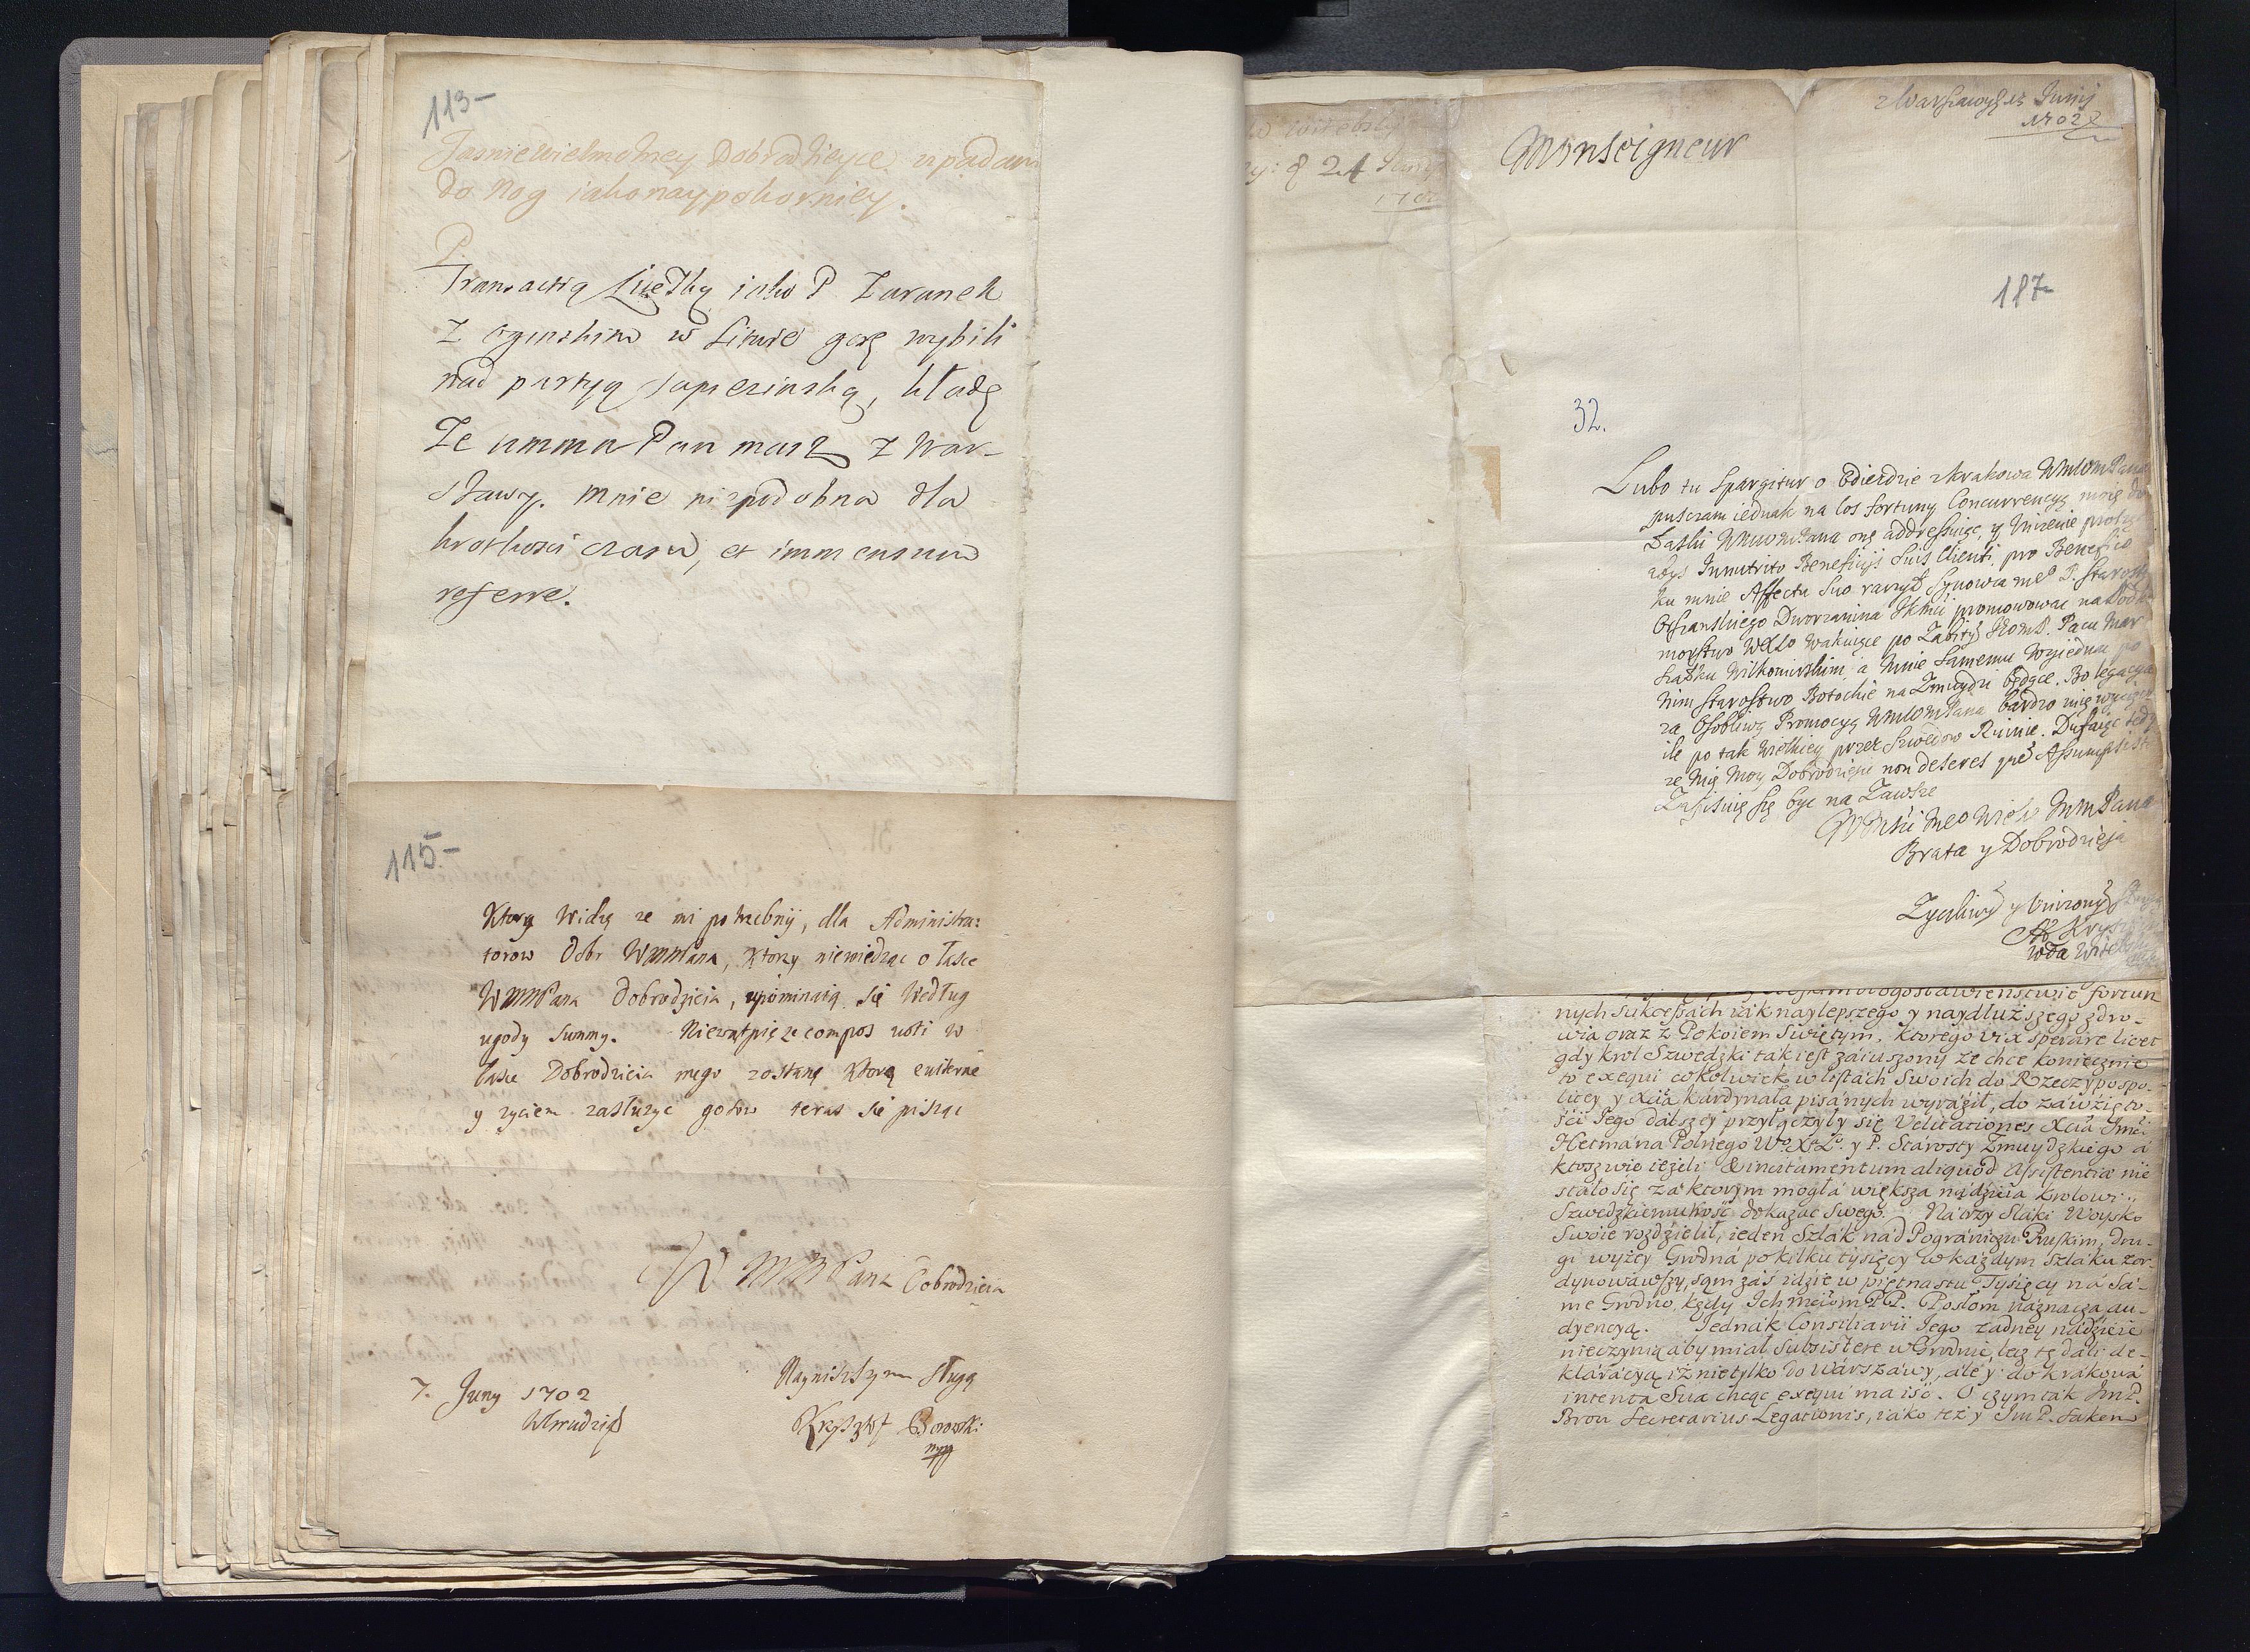 113-
Jasnie Wielmozney Dobrodzieyce upadam
do nog iako naypokorniey.
P.
Transactią Ludzką iako P Zaranek
z Oginskim w Litwie gorę wybili
nad partyą Sapiezinską, kładę
Ze umma Pan masz z War-
szawy. Mnie niepodobna dla
krotkosci czasu, et immensum
referre.
115-
Ktorą Widzę ze mi potrzebny, dla Administra=
torow Dobr WMMPana, Ktorzy niewiedząc o łasce
WMMPana Dobrodzieia, upominaią się Według
ugody Summy. Niewątpię ze compos voti w
łasce Dobrodzieia mego zostanę Ktorą
y zyciem zasłuzyc gotow teraz się pisząc
WMMPana Dobrodzieia
7. Juny 1702
Nayniższym sługą
Krzysztof Borowski
mpp
24 Juny
z Warszawy 15 Junij
1702
Monseigneur
187
32.
Lubo tu Spargitur o Odiezdzie z Krakowa WMMPana
puszczam iednak na los fortuny Concurrencyą moię do
Łaski WMMPana onę addressuiąc, y Unizenie proszę
abys Immerito Beneficijs Suis Clienti, pro Benefico
ku mnie Affectu Suo raczył Synowca me° P. Starostę
Orszanskiego Dworzanina promowowac na Pod
morstwo WXLo Wakuiące po Zabitym P. Pacu Mar
szałku Wilkomirskim, a Mnie Samemu
Nim Starostwo Botockie na Zmuydzi będące. Bo legacya
za Osobliwą Promocyą WMMPana bardzo mię
ile po tak Wielkiey przez Szwedow Ruinie. Dufaiąc tedy
ze Mię Moy Dobrodzieju non deseres
Zapisuię się byc na Zawsze
WMMPana
Brata y Dobrodzieja
Zyczliwym y Unizonym
Wda Witebski
fortun
nych sukcessach iak naylepszego y naydłuższego zdro-
wia oraz z Pokoiem Swiętym, ktorego vix sperare licet
gdy krol Szwedzki tak iest zaiuszony że chce koniecznie
to exequi cokolwiek w listach swoich do Rzeczypospo-
litey y Xcia Kardynała pisanych wyraził, do zawzięto-
sci iego dalszey przyłączyły się Velitationes Xcia Jmci
Hetmana Polnego Wo. X. L. y P. Starosty Zmuydzkiego a
ktosz wie ieżeli & incitamentum aliquod assistentia nie
stało się za ktorym mogła większa nadzieia krolowi
Szwedzkiemu dokazac swego. Na trzy Slaki Woysko
swoie rozdzielił, ieden szlak nad Pograniczu Ruskim, dru-
gi wyżey Grodna po kilku tysięcy w każdym szlaku zor-
dynowawszy, sam zaś idzie w piętnastu Tysięcy na Sa-
me Grodno, kędy Ichmciom PP. Posłom naznacza au-
dyencyą. Jednak Consiliarii Iego żadney nadzieie
nieczynią aby miał subsistere w Grodnie, lecz tę dali de-
klaracyą iż nietylko do Warszawy, ale y do Krakowa
intenta Sua chcąc exequi ma iść. O czym tak Jm P.
Bron Secretarius Legationis, iako też y Jm P. Saken